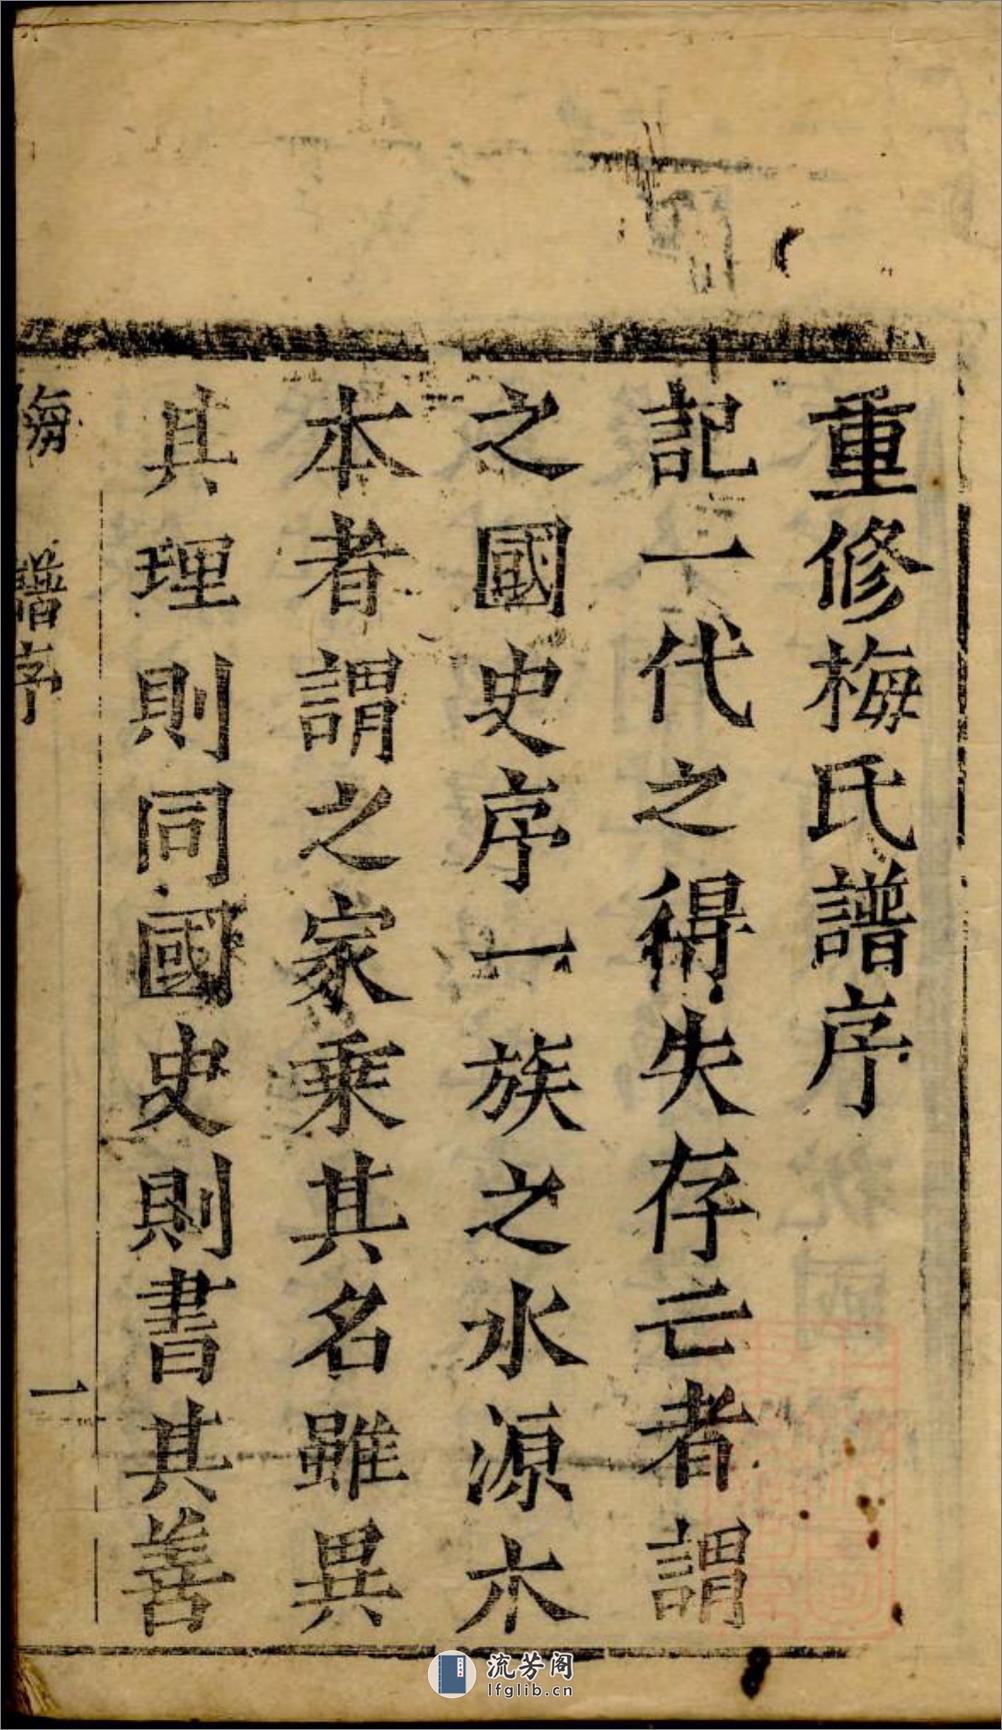 重修梅氏譜序
記一代之得失存亡者謂
之國史序一族之水源木
本者謂之家乘其名雖異
其理則同國史則書其善
梅 譜序 一
流芳阁
lfglib.cn